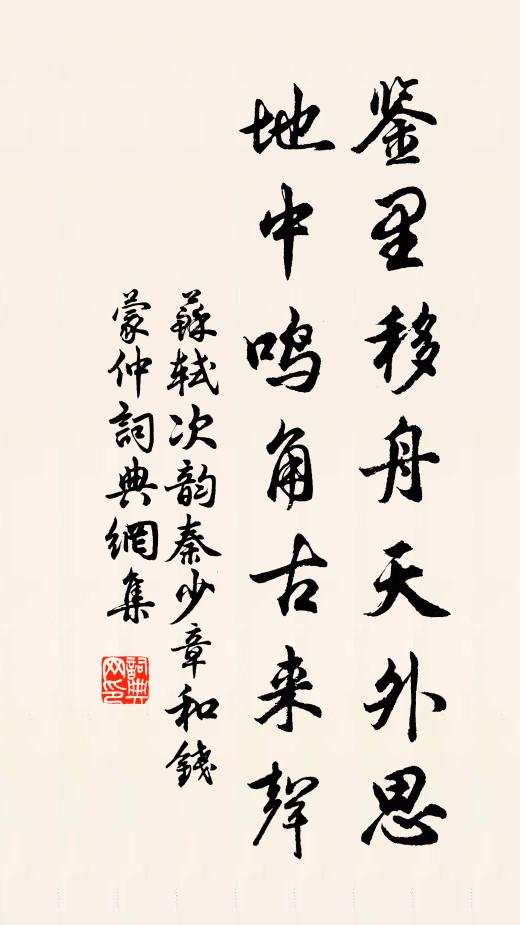 鉴里移舟天外思
地中鳴角古来聲
蘇軾次韵秦少章和錢
蒙仲詞典網集
詞典网印